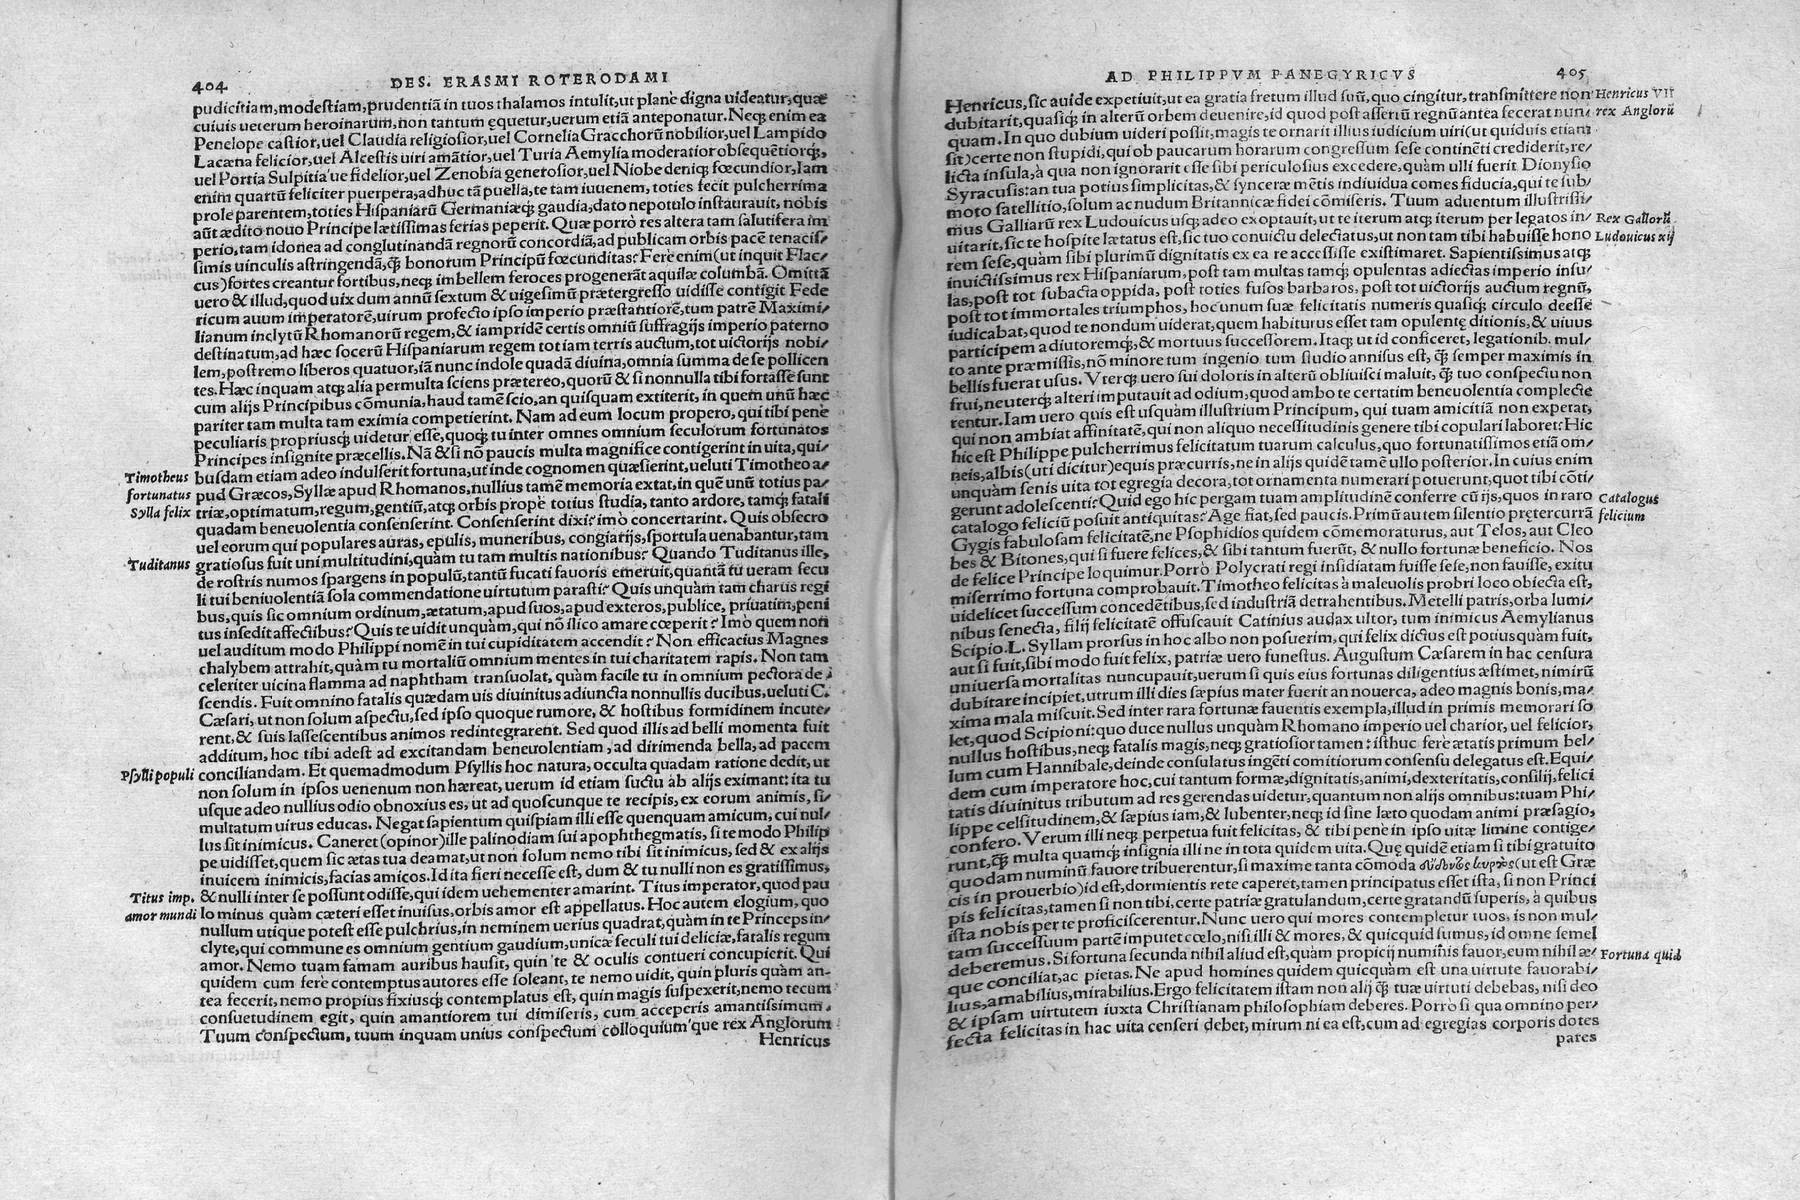 404
DES. ERASMI ROTERODAMI
pudicitiam, modestiam, prudentiā in tuos thalamos intulit, ut planè digna uideatur, quæ
cuiuis ueterum heroinarum, non tantum equetur, uerum etiā anteponatur. Neq; enim ea
Penelope castior, uel Claudia religiosior, uel Cornelia Gracchorū nobilior, uel Lampido
Lacæna felicior, uel Alcestis uiri amātior, uel Turia Aemylia moderatior obsequētiorq;,
uel Portia Sulpitia ue fidelior, uel Zenobia generosior, uel Niobe deniq; fœcundior, Iam
enim quartū feliciter puerpera, adhuc tā puella, te tam iuuenem, toties fecit pulcherrima
prole parentem, toties Hispaniarū Germaniæq; gaudia, dato nepotulo instaurauit, nobis
aūt ædito nouo Principe lætissimas ferias peperit. Quæ porrò res altera tam salutifera im
perio, tam idonea ad conglutinandā regnorū concordiā, ad publicam orbis pacē tenacis/
simis uinculis astringendā, q̃ bonorum Principū fœcunditas? Ferè enim (ut inquit Flac/
cus) fortes creantur fortibus, neq; imbellem feroces progenerāt aquilæ columbā. Omittā
uero & illud, quod uix dum annū sextum & uigesimū prætergresso uidisse contigit Fede
ricum auum imperatorē, uirum profecto ipso imperio præstantiorē, tum patrē Maximi/
lianum inclytū Rhomanorū regem, & iampridē certis omniū suffragijs imperio paterno
destinatum, ad hæc socerū Hispaniarum regem tot iam terris auctum, tot uictorijs nobi/
lem, postremo liberos quatuor, iā nunc indole quadā diuina, omnia summa de se pollicen
tes. Hæc inquam atq; alia permulta sciens prætereo, quorū & si nonnulla tibi fortasse sunt
cum alijs Principibus cōmunia, haud tamē scio, an quisquam extiterit, in quem unū hæc
pariter tam multa tam eximia competierint. Nam ad eum locum propero, qui tibi penè
peculiaris propriusq; uidetur esse, quoq; tu inter omnes omnium seculorum fortunatos
Principes insignite præcellis. Nā & si nō paucis multa magnifice contigerint in uita, qui/
Timotheus
busdam etiam adeo indulserit fortuna, ut inde cognomen quæsierint, ueluti Timotheo a/
fortunatus
pud Græcos, Syllæ apud Rhomanos, nullius tamē memoria extat, in quē unū totius pa/
Sylla felix
triæ, optimatum, regum, gentiū, atq; orbis propè totius studia, tanto ardore, tamq; fatali
quadam beneuolentia consenserint. Consenserint dixi? imò concertarint. Quis obsecro
uel eorum qui populares auras, epulis, muneribus, congiarijs, sportula uenabantur, tam
Tuditanus
gratiosus fuit uni multitudini, quàm tu tam multis nationibus? Quando Tuditanus ille,
de rostris numos spargens in populū, tantū fucati fauoris emeruit, quantā tu ueram secu
li tui beniuolentiā sola commendatione uirtutum parasti? Quis unquàm tam charus regi
bus, quis sic omnium ordinum, ætatum, apud suos, apud exteros, publice, priuatim, peni
tus insedit affectibus? Quis te uidit unquàm, qui nō ilico amare cœperit? Imò quem non
uel auditum modo Philippi nomē in tui cupiditatem accendit? Non efficacius Magnes
chalybem attrahit, quàm tu mortaliū omnium mentes in tui charitatem rapis. Non tam
celeriter uicina flamma ad naphtham transuolat, quàm facile tu in omnium pectora de/
scendis. Fuit omnino fatalis quædam uis diuinitus adiuncta nonnullis ducibus, ueluti C.
Cæsari, ut non solum aspectu, sed ipso quoque rumore, & hostibus formidinem incute/
rent, & suis lassescentibus animos redintegrarent. Sed quod illis ad belli momenta fuit
additum, hoc tibi adest ad excitandam beneuolentiam, ad dirimenda bella, ad pacem
Psylli populi
conciliandam. Et quemadmodum Psyllis hoc natura, occulta quadam ratione dedit, ut
non solum in ipsos uenenum non hæreat, uerum id etiam suctu ab alijs eximant: ita tu
usque adeo nullius odio obnoxius es, ut ad quoscunque te recipis, ex eorum animis, si/
multatum uirus educas. Negat sapientum quispiam illi esse quenquam amicum, cui nul/
lus sit inimicus. Caneret (opinor) ille palinodiam sui apophthegmatis, si te modo Philip
pe uidisset, quem sic ætas tua deamat, ut non solum nemo tibi sit inimicus, sed & ex alijs
inuicem inimicis, facias amicos. Id ita fieri necesse est, dum & tu nulli non es gratissimus,
Titus imp.
& nulli inter se possunt odisse, qui idem uehementer amarint. Titus imperator, quod pau
amor mundi
lo minus quàm cæteri esset inuisus, orbis amor est appellatus. Hoc autem elogium, quo
nullum utique potest esse pulchrius, in neminem uerius quadrat, quàm in te Princeps in/
clyte, qui commune es omnium gentium gaudium, unicæ seculi tui deliciæ, fatalis regum
amor. Nemo tuam famam auribus hausit, quin te & oculis contueri concupierit. Qui
quidem cum ferè contemptus autores esse soleant, te nemo uidit, quin pluris quàm an-
tea fecerit, nemo propius fixiusq; contemplatus est, quin magis suspexerit, nemo tecum
consuetudinem egit, quin amantiorem tui dimiseris, cum acceperis amantissimum.
Tuum conspectum, tuum inquam unius conspectum colloquium'que rex Anglorum
Henricus
AD PHILIPPVM PANEGYRICVS
405
Henricus, sic auide expetiuit, ut ea gratia fretum illud suū, quo cingitur, transmittere non
Henricus VII
dubitarit, quasiq; in alterū orbem deuenire, id quod post assertū regnū antea fecerat nun/
rex Anglorū
quam. In quo dubium uideri possit, magis te ornarit illius iudicium uiri (ut quiduis etiam
sit) certe non stupidi, qui ob paucarum horarum congressum sese continēti crediderit, re/
licta insula, à qua non ignorarit esse sibi periculosius excedere, quàm ulli fuerit Dionysio
Syracusis: an tua potius simplicitas, & synceræ mētis indiuidua comes fiducia, qui te sub/
moto satellitio, solum ac nudum Britannicæ fidei cōmiseris. Tuum aduentum illustrissi/
mus Galliarū rex Ludouicus usq; adeo exoptauit, ut te iterum atq; iterum per legatos in/
Rex Gallorū
uitarit, sic te hospite lætatus est, sic tuo conuictu delectatus, ut non tam tibi habuisse hono
Ludouicus xij
rem sese, quàm sibi plurimū dignitatis ex ea re accessisse existimaret. Sapientissimus atq;
inuictissimus rex Hispaniarum, post tam multas tamq; opulentas adiectas imperio insu/
las, post tot subacta oppida, post toties fusos barbaros, post tot uictorijs auctum regnū,
post tot immortales triumphos, hoc unum suæ felicitatis numeris quasiq; circulo deesse
iudicabat, quod te nondum uiderat, quem habiturus esset tam opulentę ditionis, & uiuus
participem adiutoremq;, & mortuus successorem. Itaq; ut id conficeret, legationib. mul/
to ante præmissis, nō minore tum ingenio tum studio annisus est, q̃ semper maximis in
bellis fuerat usus. Vterq; uero sui doloris in alterū obliuisci maluit, q̃ tuo conspectu non
frui, neuterq; alteri imputauit ad odium, quod ambo te certatim beneuolentia complecte
rentur. Iam uero quis est usquàm illustrium Principum, qui tuam amicitiā non experat,
qui non ambiat affinitatē, qui non aliquo necessitudinis genere tibi copulari laboret: Hic
hic est Philippe pulcherrimus felicitatum tuarum calculus, quo fortunatissimos etiā om/
neis, albis (uti dicitur) equis præcurris, ne in alijs quidē tamē ullo posterior. In cuius enim
unquàm senis uita tot egregia decora, tot ornamenta numerari potuerunt, quot tibi cōti/
gerunt adolescenti? Quid ego hîc pergam tuam amplitudinē conferre cū ijs, quos in raro
Catalogus
catalogo feliciū posuit antiquitas? Age fiat, sed paucis. Primū autem silentio prętercurrā
felicium
Gygis fabulosam felicitatē, ne Psophidios quidem cōmemoraturus, aut Telos, aut Cleo
bes & Bitones, qui si fuere felices, & sibi tantum fuerūt, & nullo fortunæ beneficio. Nos
de felice Principe loquimur. Porrò Polycrati regi insidiatam fuisse sese, non fauisse, exitu
miserrimo fortuna comprobauit. Timotheo felicitas à maleuolis probri loco obiecta est,
uidelicet successum concedētibus, sed industriā detrahentibus. Metelli patris, orba lumi/
nibus senecta, filij felicitatē offuscauit Catinius audax ultor, tum inimicus Aemylianus
Scipio. L. Syllam prorsus in hoc albo non posuerim, qui felix dictus est potius quàm fuit,
aut si fuit, sibi modo fuit felix, patriæ uero funestus. Augustum Cæsarem in hac censura
uniuersa mortalitas nuncupauit, uerum si quis eius fortunas diligentius æstimet, nimirū
dubitare incipiet, utrum illi dies sæpius mater fuerit an nouerca, adeo magnis bonis, ma/
xima mala miscuit. Sed inter rara fortunæ fauentis exempla, illud in primis memorari so
let, quod Scipioni: quo duce nullus unquàm Rhomano imperio uel charior, uel felicior,
nullus hostibus, neq; fatalis magis, neq; gratiosior tamen: isthuc ferè ætatis primum bel/
lum cum Hannibale, deinde consulatus ingēti comitiorum consensu delegatus est. Equi/
dem cum imperatore hoc, cui tantum formæ, dignitatis, animi, dexteritatis, consilij, felici
tatis diuinitus tributum ad res gerendas uidetur, quantum non alijs omnibus: tuam Phi/
lippe celsitudinem, & sæpius iam, & lubenter, neq; id sine læto quodam animi præsagio,
confero. Verum illi neq; perpetua fuit felicitas, & tibi penè in ipso uitæ limine contige/
runt, q̃ multa quamq; insignia illi ne in tota quidem uita. Quę quidē etiam si tibi gratuito
quodam numinū fauore tribuerentur, si maxime tanta cōmoda (ut est Græ
cis in prouerbio) id est, dormientis rete caperet, tamen principatus esset ista, si non Princi
pis felicitas, tamen si non tibi, certe patriæ gratulandum, certe gratandū superis, à quibus
ista nobis per te proficiscerentur. Nunc uero qui mores contempletur tuos, is non mul/
tam successuum partē imputet cœlo, nisi illi & mores, & quicquid sumus, id omne semel
deberemus. Si fortuna secunda nihil aliud est, quàm propicij numinis fauor, eum nihil æ/
Fortuna quid
que conciliat, ac pietas. Ne apud homines quidem quicquàm est una uirtute fauorabi/
lius, amabilius, mirabilius. Ergo felicitatem istam non alij q̃ tuæ uirtuti debebas, nisi deo
& ipsam uirtutem iuxta Christianam philosophiam deberes. Porrò si qua omnino per/
fecta felicitas in hac uita censeri debet, mirum ni ea est, cum ad egregias corporis dotes
pares